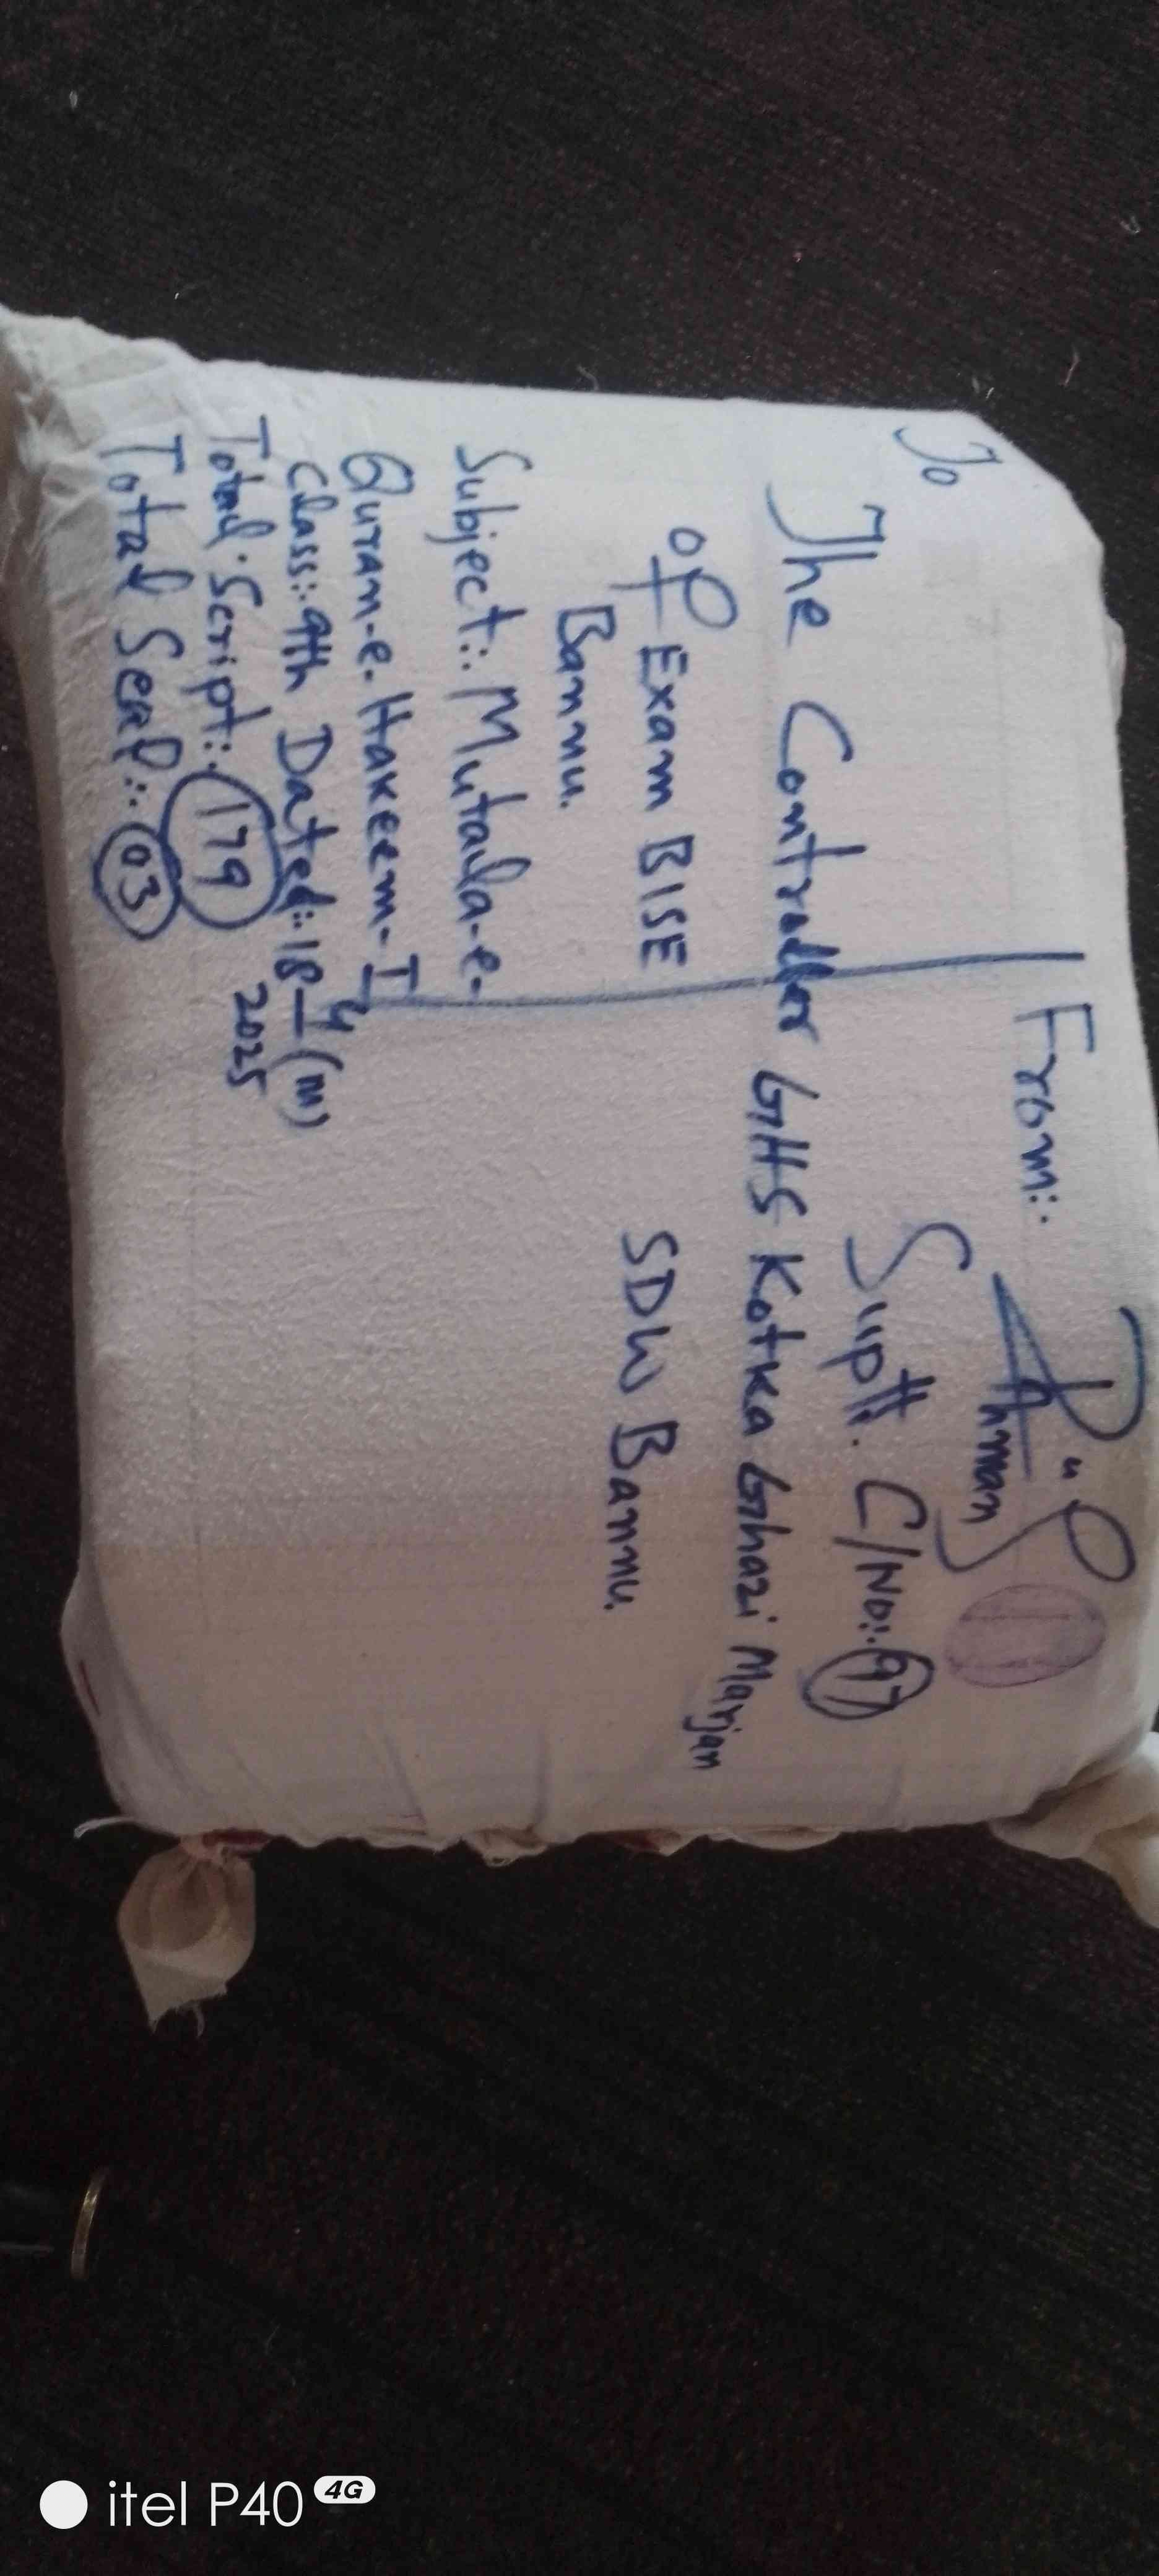 To
The Controller
of Exam BISE
Bannu.
Subject:. Mutaila-e-
Quran-e-Hakeem-I
Class:. 9th Dated:. 18-4 (M)
2025
Total Script:. 179
Total Seal:. 03
From:.
Suptt. C/No:. 97
GHS Kotka Ghazi Marjan
SDW Bannu.
itel P40 4G